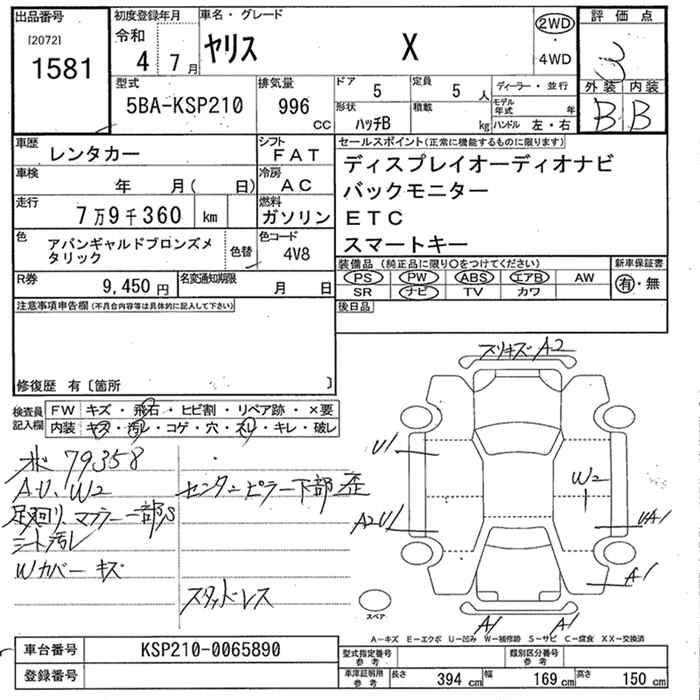 出品番号
[2072]
1581
初度登録年月
令和
4 7月
車名・グレード
ヤリス X
2WD
・
4WD
評価点
3
外装 内装
B B
型式
5BA-KSP210
排気量
996
CC
ドア
5
定員
5 人
形状
ハッチB
積載
kg
ディーラー・並行
モデル年式 年
ハンドル 左・右
車歴
レンタカー
シフト
FAT
車検
年 月( 日)
冷房
AC
走行
7万9千360 km
燃料
ガソリン
色
アバンギャルドブロンズメ
タリック
色替
色コード
4V8
R券
9,450 円
名変通知期限
月 日
セールスポイント(正常に機能するものに限ります)
ディスプレイオーディオナビ
バックモニター
ETC
スマートキー
装備品(純正品に限り○をつけてください)
PS PW ABS エアB AW
SR ナビ TV カワ
新車保証書
有・無
後日品
注意事項申告欄(不具合内容等は具体的に記入して下さい)
修復歴 有〔箇所 〕
検査員
記入欄
FW キズ・飛石・ヒビ割・リペア跡・×要
内装 キズ・汚レ・コゲ・穴・スレ・キレ・破レ
79358
A・U、W2
足廻リ、マフラー一部S
シート汚レ
Wカバーキズ
センターピラー下部歪
スタッドレス
スリキズ A2
U1
W2
A2U1
UA1
A1
A1
A1
スペア
A-キズ E-エクボ U-凹み W-補修跡 S-サビ C-腐食 XX-交換済
車台番号
KSP210-0065890
登録番号
型式指定番号
参考
類別区分番号
参考
車庫証明用
参考
長さ 394 cm
幅 169 cm
高さ 150 cm